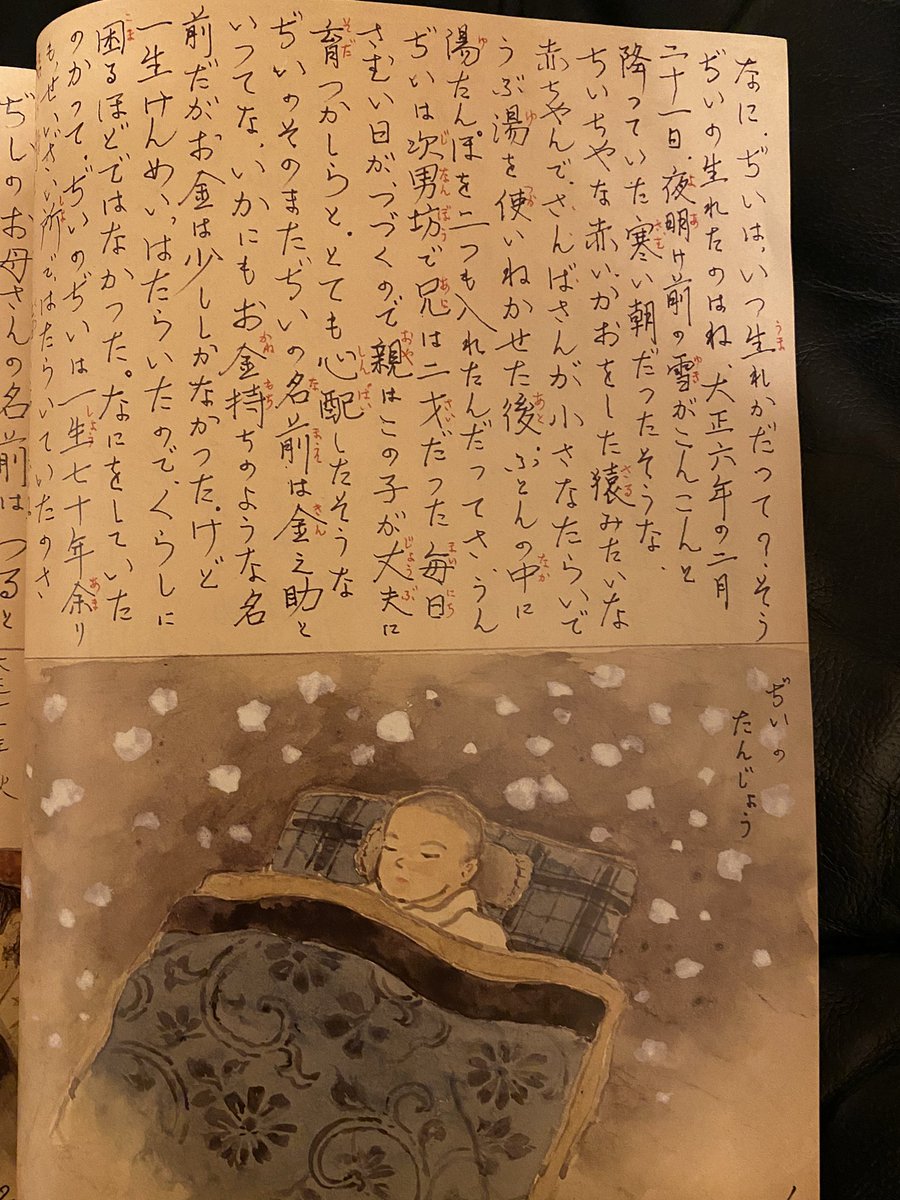 なに、ぢいは、いつ生れかだって？そう
ぢいの生れたのはね、大正六年の二月
二十一日、夜明け前の雪がこんこんと
降っていた寒い朝だったそうな、
ちいちゃな赤いかおをした猿みたいな
赤ちゃんで、さんばさんが小さなたらいで
うぶ湯を使いねかせた後、ふとんの中に
湯たんぽを二つも入れたんだってさ、うん
ぢいは次男坊で兄は二才だった毎日
さむい日が、つづくので親はこの子が丈夫に
育つかしらと。とても心配したそうな
ぢいのそのまた、ぢいの名前は金之助と
いってな、いかにもお金持ちのような名
前だがお金は少ししかなかった。けど
一生けんめいっはたらいたので、くらしに
困るほどではなかった。なにをしていた
のかって。ぢいのぢいは一生七十年余り
もっせいざい所ではたらいていたのさ
ぢいの
たんじょう
ぢしのお母さんの名前は、つると